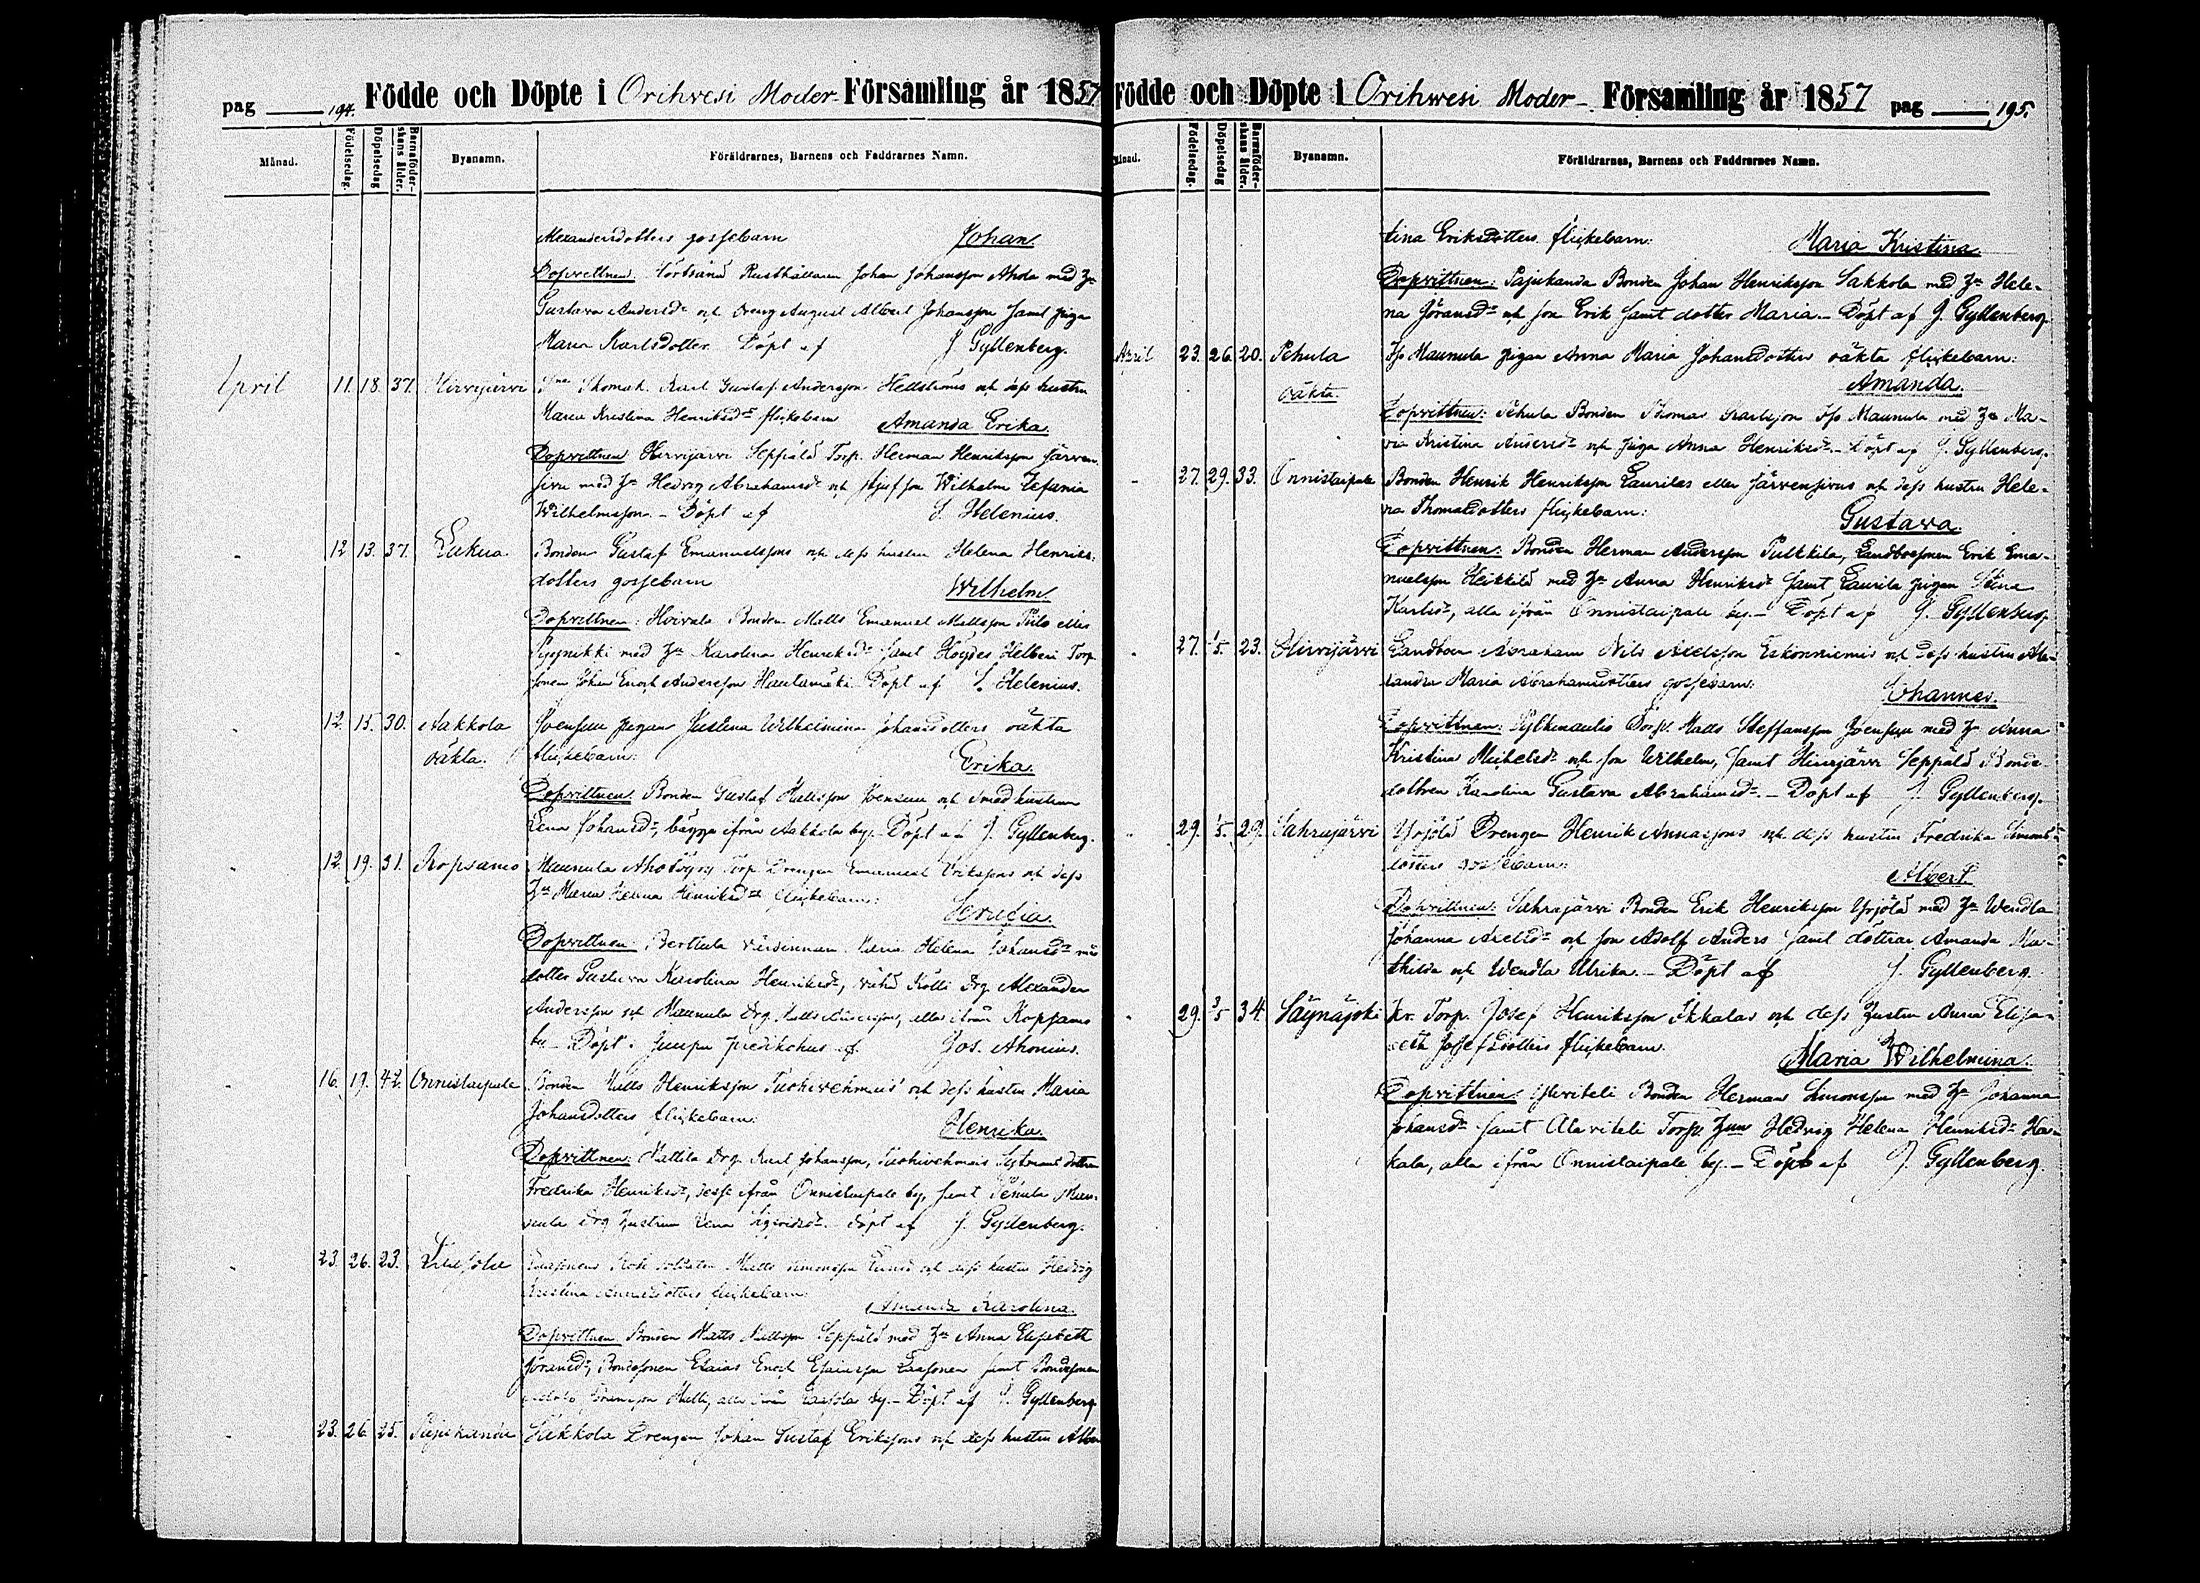 pag 194. Födde och Döpte i Orihvesi Moder- Församling år 1857
Månad. Födelsedag. Döpelsedag Barnaföder-skans ålder. Byanamn. Föräldrarnes, Barnens och Faddrarnes Namn.
Alexandersdotters gossebarn Johan.
Dopvittnen: Rusthållaren Johan Johansson Ahola med H:u
Gustava Andersd:r och Dreng August Albert Johansson samt piga
Maria Karlsdotter. Döpt af J. Gyllenberg.
April 11. 18. 37. Hirvijärvi Karl Gustaf Andersson Hellströms och dess hustru
Maria Kristina Henriksd:rs flickebarn Amanda Erika.
Dopvittnen Hirvijärvi Seppälä Torp. Herman Henriksson Järven-
sivu med H:u Hedvig Abrahamsd:r och Wilhelm Zefania
Wilhelmsson. – Döpt af S. Helenius.
12. 13. 37. Eukua. Bonden Gustaf Emanuelssons och dess hustru Helena Henriks-
dotters gossebarn Wilhelm.
Dopvittnen: Bonden Matts Emanuel Mattsson eller
med H:u Karolina Henriksd:r samt Torp-
sonen Johan Enoch Andersson Hautamäki. Döpt af S. Helenius.
12. 13. 30. Aakkola Joensuu pigan Justina Wilhelmina Johansdotters oäkta
oäkta. flickebarn: Erika.
Dopvittnen: Bonden Gustaf Mattsson Joensuu och hustrun
Lena Johansd:r, bägge ifrån Aakkola by. Döpt af J. Gyllenberg.
12. 19. 31. Kopsamo Maunula Torp. Drengen Emanuel Erikssons och dess
H:u Maria Helena Henriksd:rs flickebarn: Serafia.
Dopvittnen: Perttula värdinnan Maria Helena Johansd:r med
dotter Gustava Karolina Henriksd:r, Kölli Drg. Alexander
Andersson och Maunula Drg. Matts Andersson, alla ifrån Kopsamo
by. Döpt i predikohus af Jos. Ahonius.
16. 19. 42. Onnistaipale Bonden Matts Henriksson Tuohivehmais och dess hustru Maria
Johansdotters flickebarn: Henrika.
Dopvittnen: Mattila Drg. Karl Johansson, Tuohivehmais dottren
Fredrika Henriksd:r, desse ifrån Onnistaipale by, samt Pehula Mau-
nula Drg hustrun Lena Döpt af J. Gyllenberg.
23. 26. 23. Rote soldaten Matts Simonsson och dess hustru Hedvig
Kristina flickebarn: Amanda Karolina.
Dopvittnen Bonden Matts Mattsson Seppälä med H:u Anna Elisabeth
Göransd:r, Bondesonen Esaias Enoch Esaiasson Laasonen samt Bondesonen
alla ifrån by. – Döpt af J. Gyllenberg
23. 26. 25. Pajukanda Sakkola Drengen Johan Gustaf Erikssons och dess hustru Alber-
Födde och Döpte i Orihwesi Moder- Församling år 1857 pag 195.
Födelsedag. Döpelsedag Barnaföder-skans ålder. Byanamn. Föräldrarnes, Barnens och Faddrarnes Namn.
tina Eriksdotters flickebarn: Maria Kristina.
Dopvittnen: Pajukanda Bonden Johan Henriksson Sakkola med H:u Hele-
na Göransd:r och son Erik samt dotter Maria. Döpt af J. Gyllenberg.
April 23. 26. 20. Pehula Maunula pigan Anna Maria Johansdotters oäkta flickebarn:
oäkta. Amanda.
Dopvittnen: Pehula Bonden Thomas Karlsson Maunula med H:u Ma-
ria Kristina Andersd:r och piga Anna Henriksd:r. – Döpt af J. Gyllenberg.
27. 29. 33. Onnistaipale Bonden Henrik Henriksson Laurilas eller Järvensivus och dess hustru Hele-
na Thomasdotters flickebarn: Gustava.
Dopvittnen: Bonden Herman Andersson Pulkkila, Landbosonen Erik Ema-
nuelsson Heikkilä med H:u Anna Henriksd:r samt Laurila pigan Stina
Karlsd:r, alla ifrån Onnistaipale by. – Döpt af J. Gyllenberg
27. 1/5. 23. Hirvijärvi Landboen Abraham Nils Axelsson Eskonniemis och dess hustru Alex-
andra Maria Abrahamsdotters gossebarn: Johannes.
Dopvittnen: Torp. Matts Steffansson Joensuu med H:u Anna
Kristina Michelsd:r och son Wilhelm, samt Hirvijärvi Seppälä Bonde-
dottren Karolina Gustava Abrahamsd:r. – Döpt af J. Gyllenberg.
29. 1/5. 29. Sahrajärvi Yrjölä Drengen Henrik Annassons och dess hustru Fredrika Simons-
dotters gossebarn: Albert.
Dopvittnen: Sahrajärvi Bonden Erik Henriksson Yrjölä med H:u Wendla
Johanna Axelsd:r och son Adolf Anders samt döttrar Amanda Ma-
thilda och Wendla Ulrika. – Döpt af J. Gyllenberg
29. 3/5 34. Säynäjoki Kr. Torp. Josef Henriksson Ikkalas och dess hustru Anna Elisa-
beth Josefsdotters flickebarn. Maria Wilhelmina.
Dopvittnen: Bonden Herman Simonsson med H:u Johanna
Johansd:r samt Alaviteli Torp. H:un Hedvig Helena Henriksd:r Ha-
kala, alla ifrån Onnistaipale by. – Döpt af J. Gyllenberg.